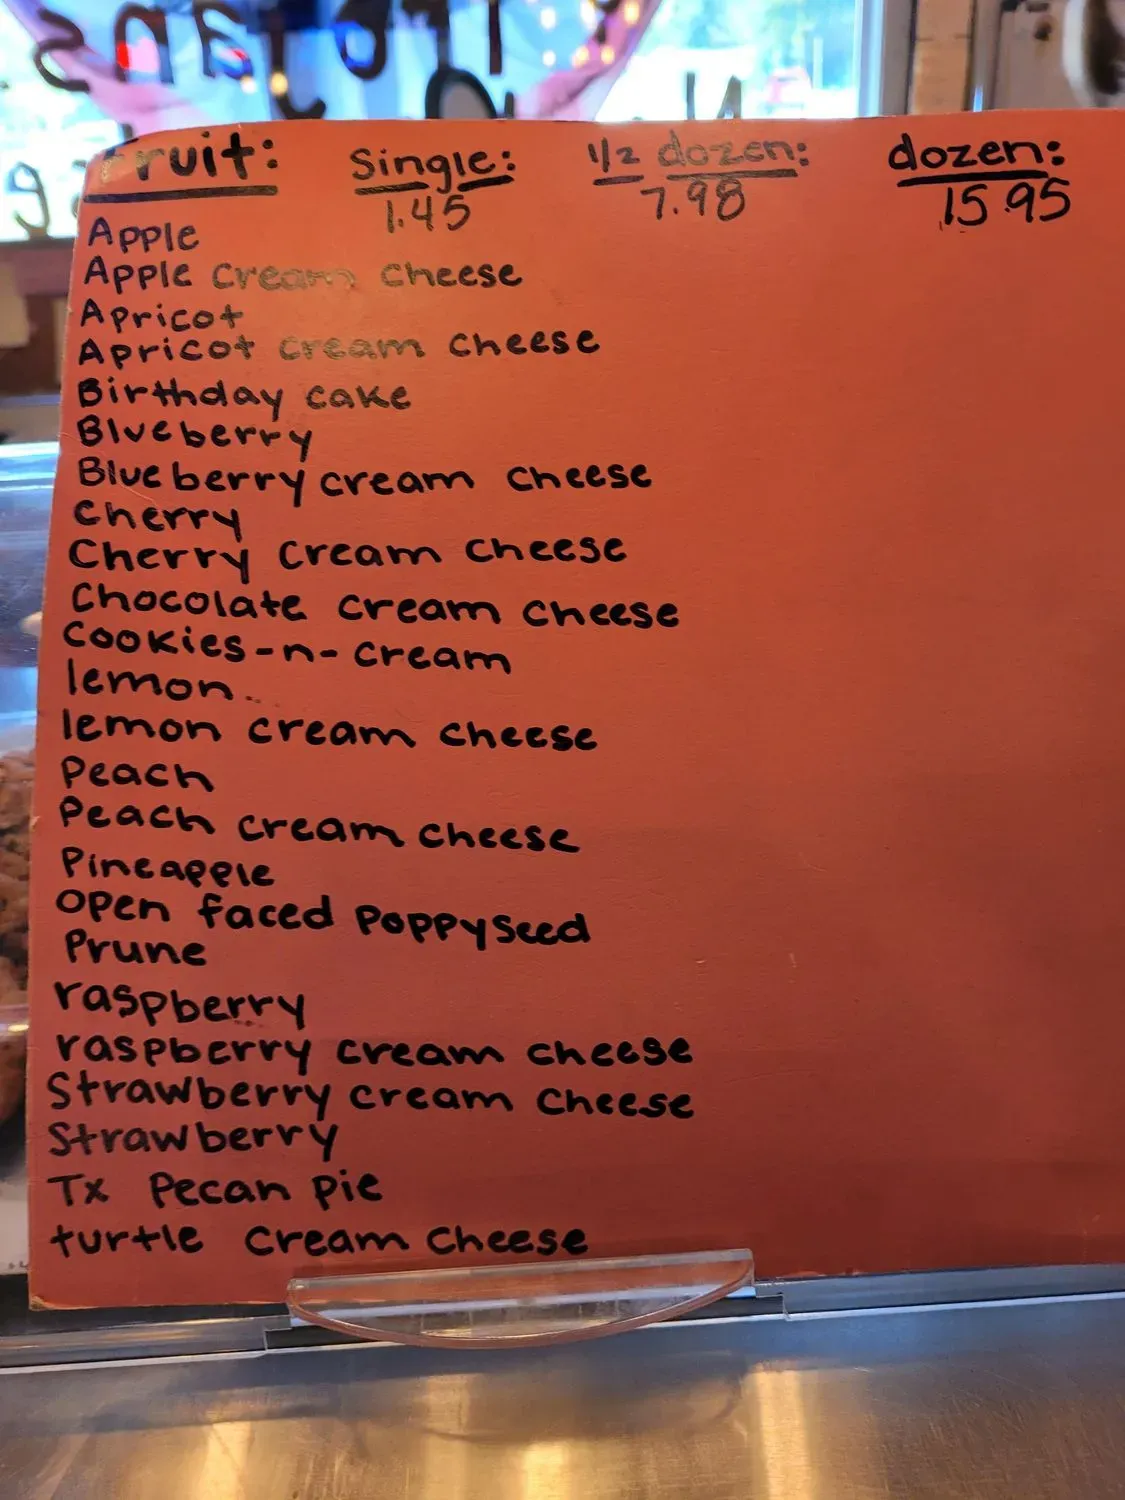 Fruit: Single: 1/2 dozen: dozen:
1.45 7.98 15.95
Apple
Apple cream cheese
Apricot
Apricot cream cheese
Birthday cake
Blueberry
Blueberry cream cheese
Cherry
Cherry cream cheese
Chocolate cream cheese
Cookies-n-cream
lemon
lemon cream cheese
Peach
Peach cream cheese
Pineapple
open faced poppyseed
Prune
raspberry
raspberry cream cheese
Strawberry cream cheese
Strawberry
Tx Pecan pie
turtle cream cheese